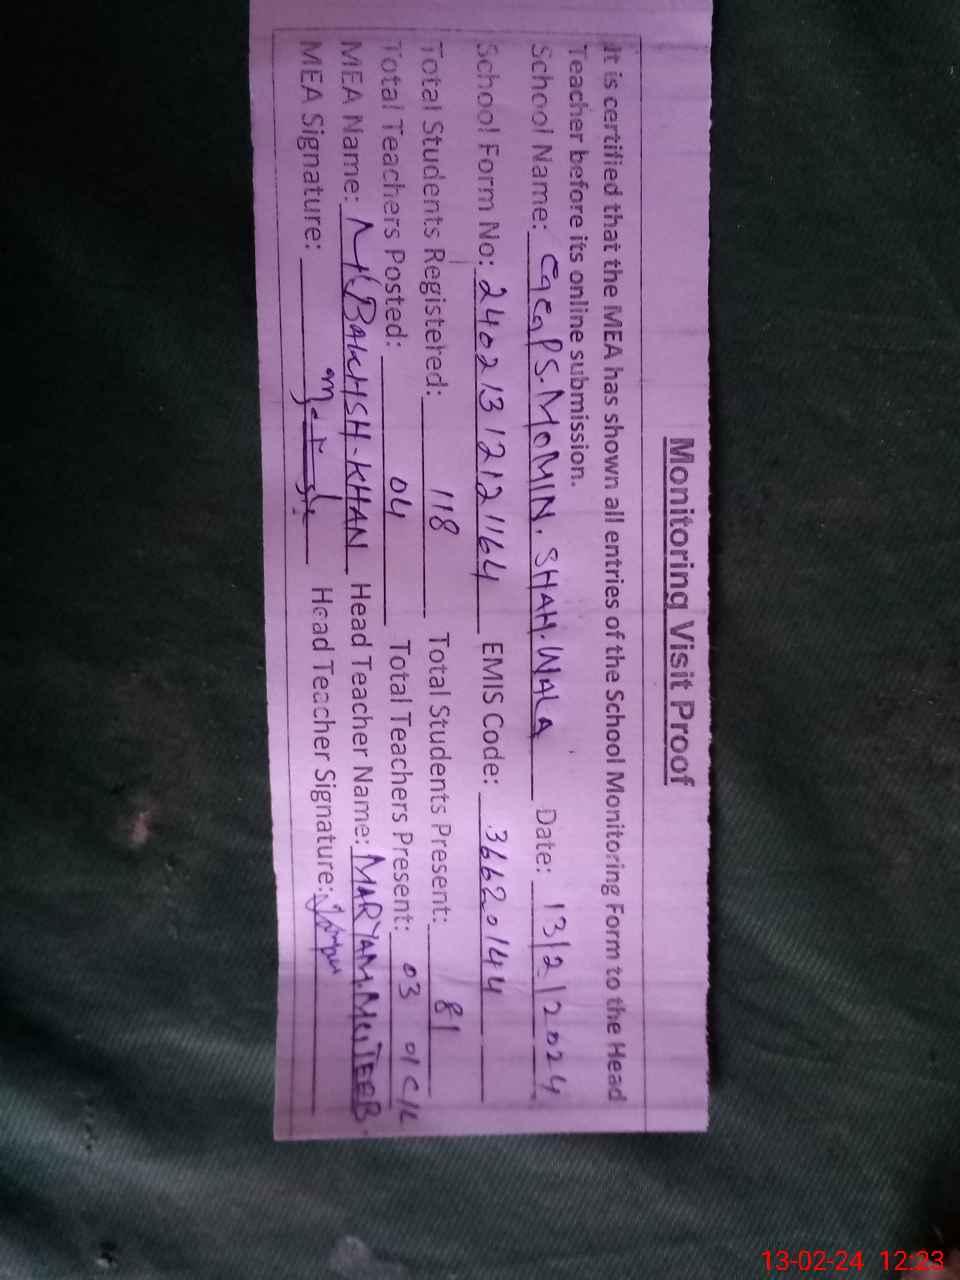 Monitoring Visit Proof
It is certified that the MEA has shown all entries of the School Monitoring Form to the Head
Teacher before its online submission.
School Name: GGPS. MOMIN. SHAH. WALA Date: 13/2/2024
School Form No: 24021312121164 EMIS Code: 36620144
Total Students Registered: 118 Total Students Present: 81
Total Teachers Posted: 04 Total Teachers Present: 03 01 C/L
MEA Name: BAKHSH-KHAN Head Teacher Name: MARYAM. MUJEEB.
MEA Signature: Head Teacher Signature:
13-02-24 12:23